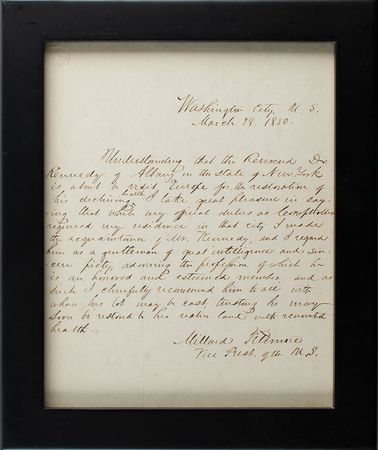 Washington City, U. S.
March 28. 1850.
Understanding that the Reverend Dr.
Kennedy of Albany in the state of New York
is about to visit Europe for the restoration of
his declining health I take great pleasure in say-
ing that while my official duties as Comptroller
required my residence in that city I made
the acquaintance of Mr. Kennedy, and I regard
him as a gentleman of great intelligence and sin-
cere piety, adorning the profession of which he
is an honored and esteemed member, and as
such I cheerfully recommend him to all with
whom his lot may be cast, trusting he may
soon be restored to his native land with renovated
health.
Millard Fillmore
Vice Prest. of the U. S.